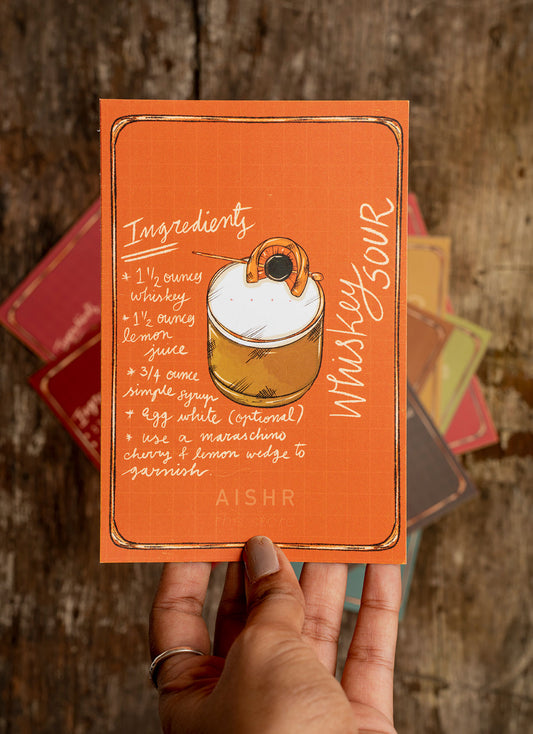 Ingredients
* 1 1/2 ounces
whiskey
* 1 1/2 ounces
lemon
juice
* 3/4 ounce
simple syrup
* Egg white (optional)
* use a maraschino
cherry & lemon wedge to
garnish.
Whiskey
SOUR
AISHR